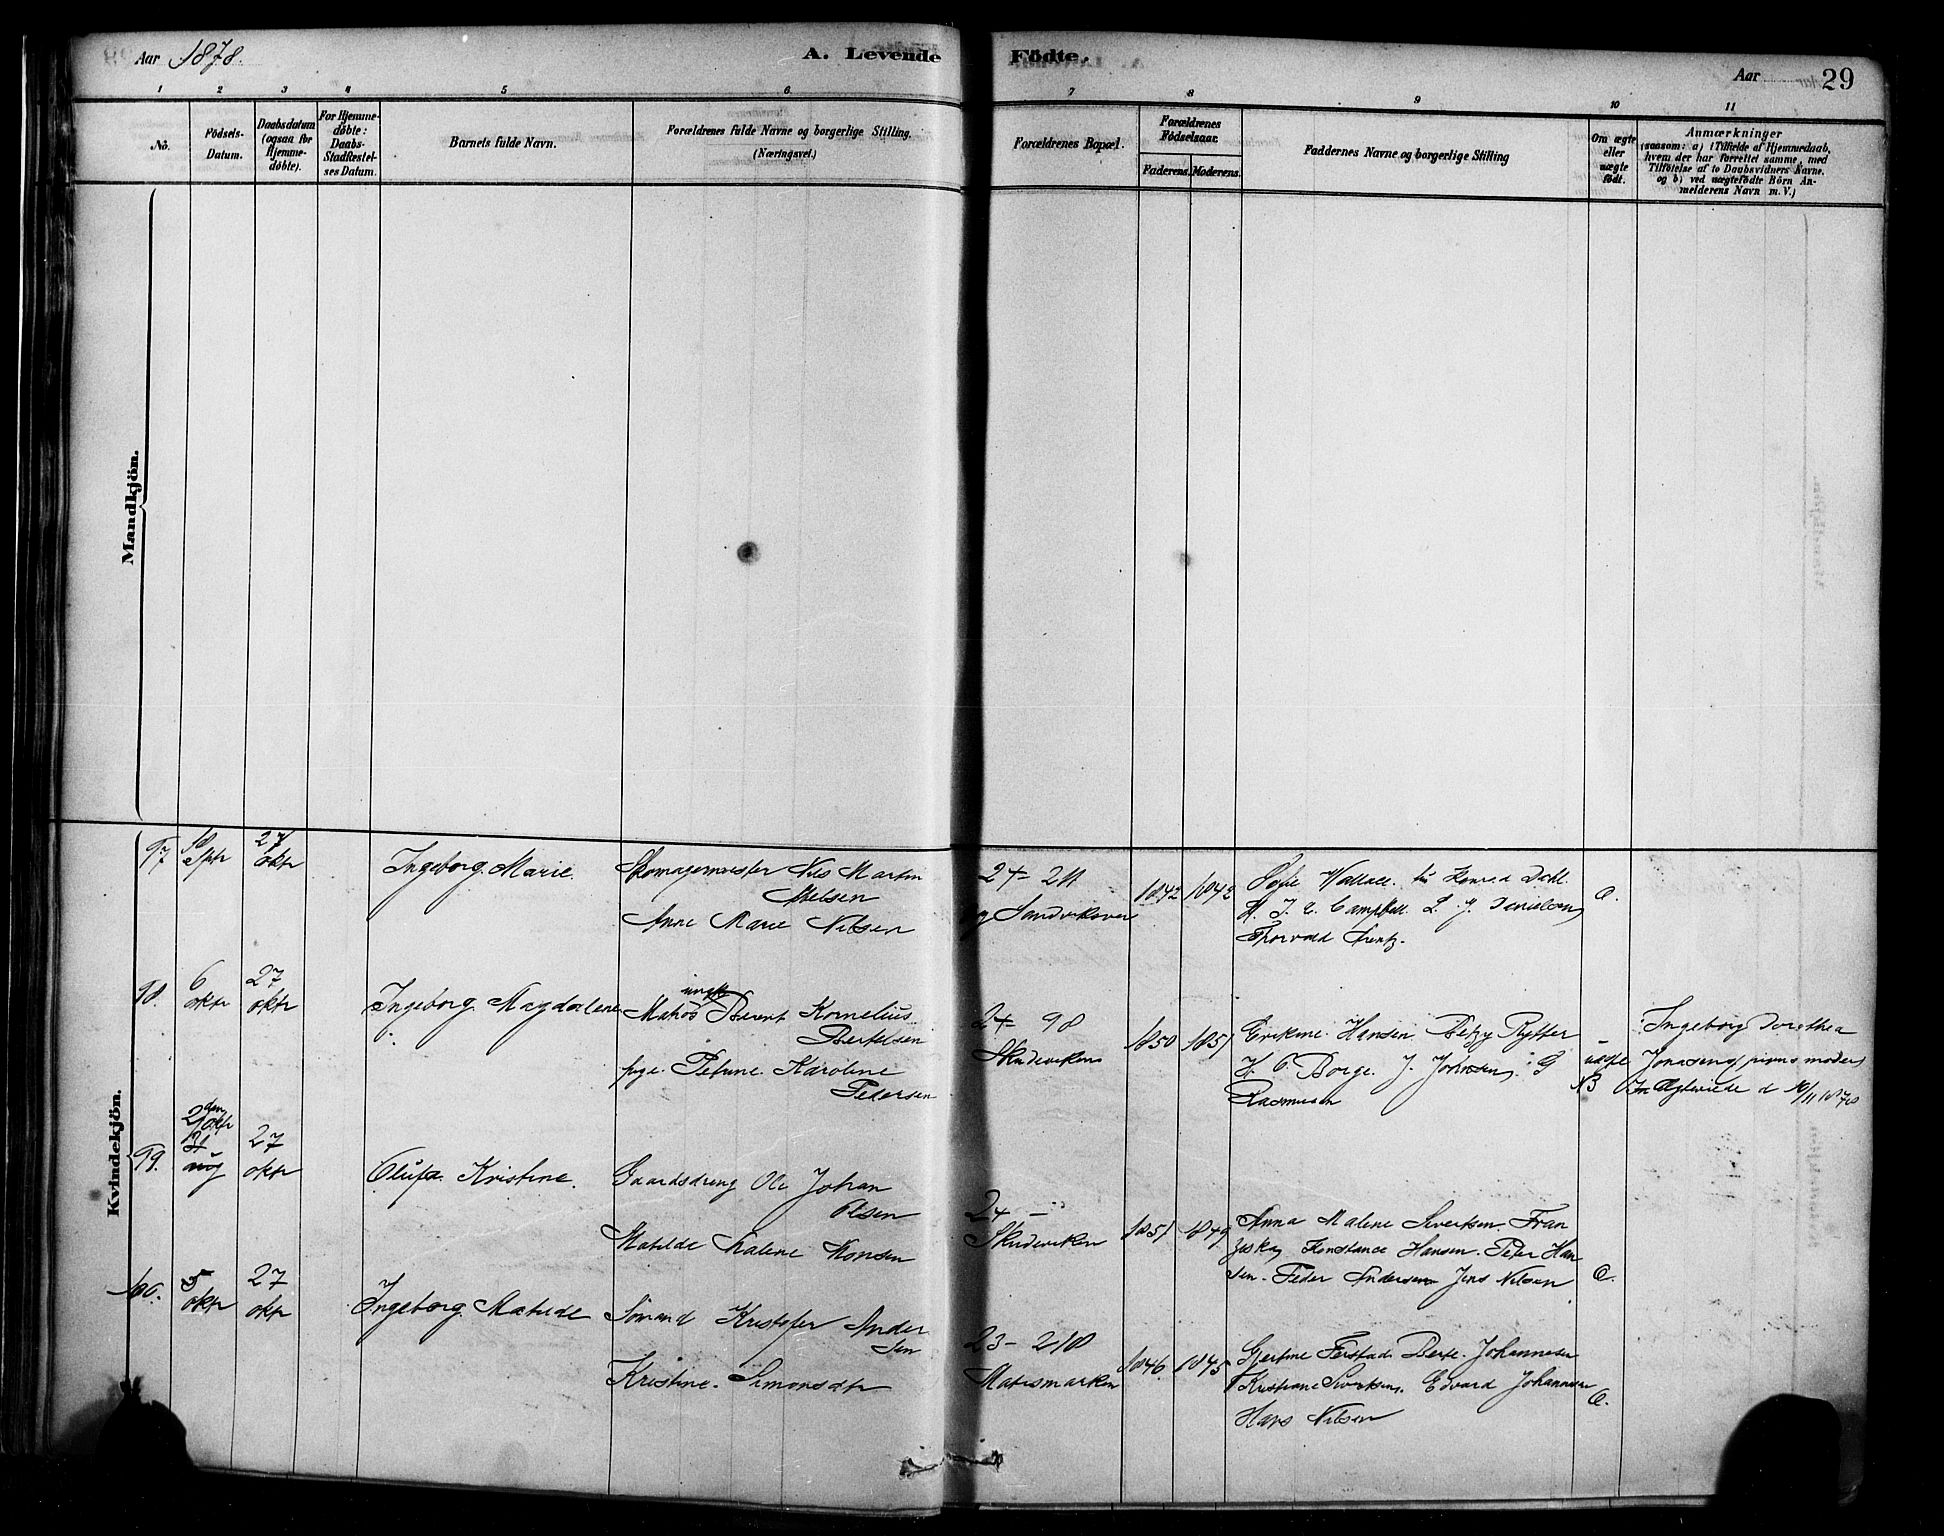 Aar 1878.
A. Levende Födte.
Aar 29
1 2 3 4 5 6 7 8 9 10 11
No.
Födsels-
Datum.
Daabsdatum
(ogsaa for
Hjemme-
döbte).
For Hjemme-
döbte:
Daabs-
Stadfæstel-
ses Datum.
Barnets fulde Navn.
Forældrenes fulde Navne og borgerlige Stilling.
(Næringsvei.)
Forældrenes Bopæl.
Forældrenes
Födselsaar.
Faderens. Moderens.
Faddernes Navne og borgerlige Stilling
Om ægte
eller
uægte
födt.
Anmærkninger
(saasom: a) i Tilfælde af Hjemmedaab,
hvem der har forrettet samme, med
Tilföielse af to Daabsvidners Navne,
og b) ved uægtefödte Börn An-
melderens Navn m. V.)
Mandkjön.
Kvindekjön.
97
Sptr
27
oktr
Ingeborg Marie.
Skomagermester Nils Martin
Anne Marie Nilsen
24-211
Sandviksvei
1842 1842
Sofie Wallace. Konrad Dahl.
Campbell. L. J.
Thorvald
98.
6
oktr
27
oktr
Ingeborg Magdalene
ungk
Matros Berent Kornelius
Bertelsen
pige. Petrine. Karoline
Pedersen
24-98
Skudeviken
1850 1851
Hansen. Betzy Rytter
H. C. Borge. J. Johnsen, G
Rasmusen
uægte
NB
Ingeborg Dorothea
Jonasen pigens moder
10/11 1878
99.
den
oktr
31
aug
27
oktr
Olufa Kristine.
Gaardsdreng Ole Johan
Olsen
Matilde Malene Monsen
24 -
Skudeviken
1851 1849
Anna Malene Sivertsen Fran
ziska, Konstance Hansen. Peter Han
sen. Peder Andersen Jens Nilsen
100.
5
oktr
27
oktr
Ingeborg Matilde
Sömand Kristofer Ander
sen
Kristine. Simonsdtr
23-218
Matismarken
1846 1845
Gjertine Ferstad Berte. Johannesen
Kristiane Sivertsen. Edvard Johannesen
Hans Nilsen